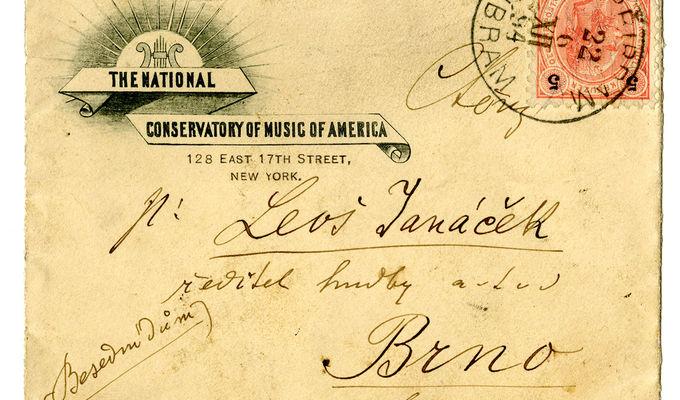 THE NATIONAL
CONSERVATORY OF MUSIC OF AMERICA
128 EAST 17TH STREET,
NEW YORK.
PŘÍBRAM
PŘIBRAM
22
6
XII
94
5 5
Leoš Janáček
ředitel hudby a t d
Brno
Besední dům